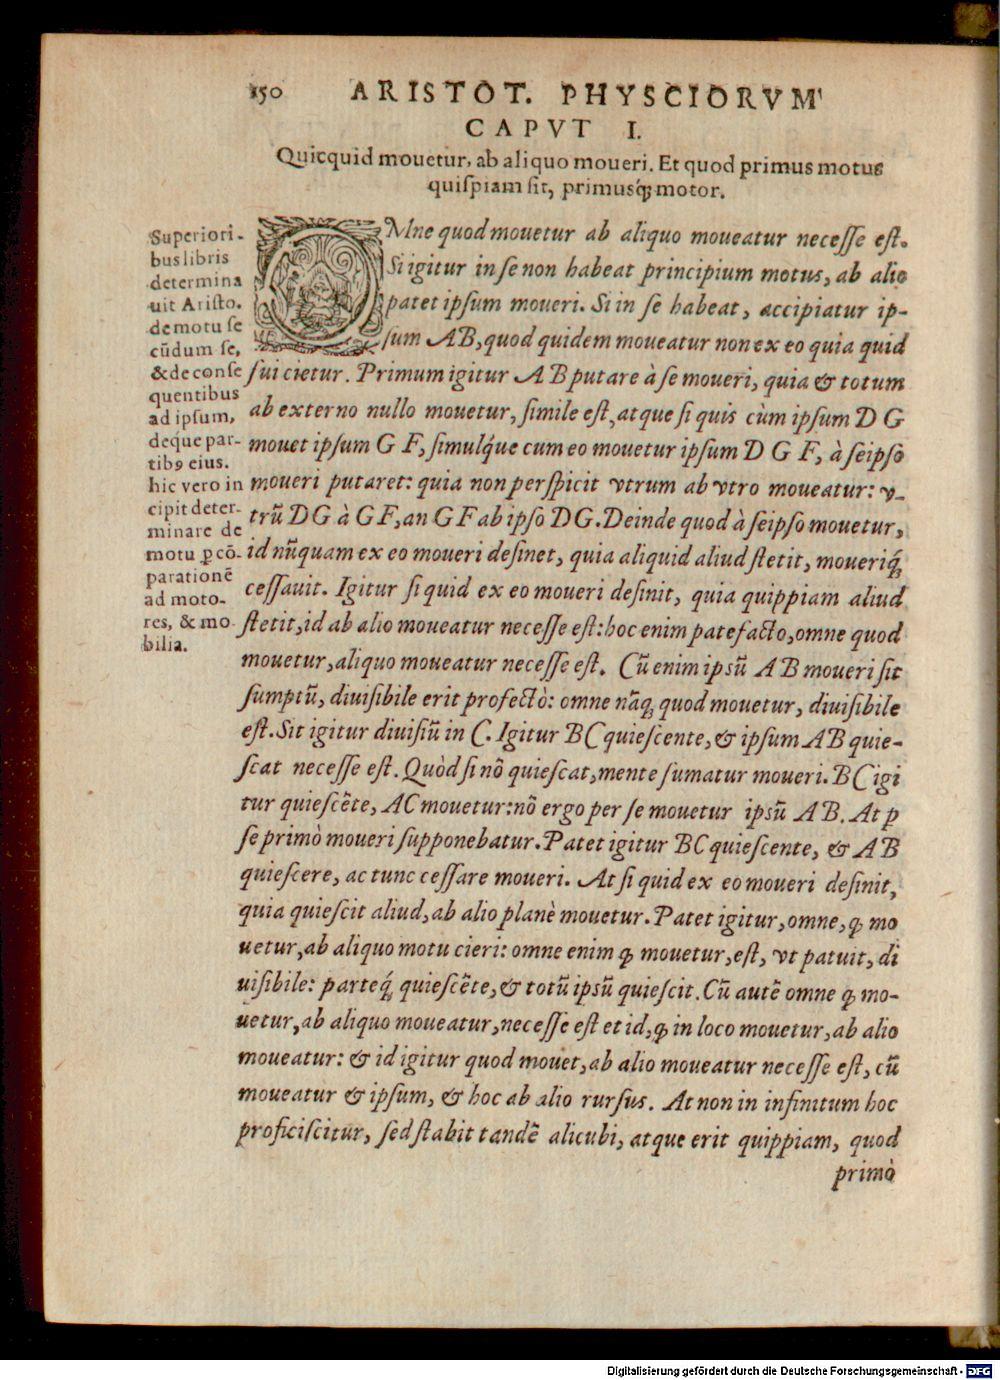 150 ARISTOT. PHYSCIORVM
CAPVT I.
Quicquid mouetur, ab aliquo moueri. Et quod primus motus
quiſpiam ſit, primusq́; motor.
Superiori-
bus libris
determina
uit Ariſto.
de motu ſe
cũdum ſe,
& de conſe
quentibus
ad ipſum,
deque par-
tibꝰ eius.
hic vero in
cipit deter-
minare de
motu ꝑ cō-
parationē
ad moto-
res, & mo-
bilia.
OMne quod mouetur ab aliquo moueatur neceſſe eſt.
Si igitur in ſe non habeat principium motus, ab alio
patet ipſum moueri. Si in ſe habeat, accipiatur ip-
ſum AB, quod quidem moueatur non ex eo quia quid
ſui cietur. Primum igitur AB putare à ſe moueri, quia & totum
ab externo nullo mouetur, ſimile eſt, atque ſi quis cùm ipſum D G
mouet ipſum G F, ſimulq́ue cum eo mouetur ipſum D G F, à ſeipſo
moueri putaret: quia non perſpicit vtrum ab vtro moueatur: v-
trũ DG à GF, an GF ab ipſo DG. Deinde quod à ſeipſo mouetur,
id nũquam ex eo moueri deſinet, quia aliquid aliud ſtetit, mouerīq́;
ceſſauit. Igitur ſi quid ex eo moueri deſinit, quia quippiam aliud
ſtetit, id ab alio moueatur neceſſe eſt: hoc enim patefacto, omne quod
mouetur, aliquo moueatur neceſſe eſt. Cũ enim ipsũ AB moueri ſit
ſumptũ, diuiſibile erit profectò: omne nãq; quod mouetur, diuiſibile
eſt. Sit igitur diuiſiũ in C. Igitur BC quieſcente, & ipſum AB quie-
ſcat neceſſe eſt. Quòd ſi nõ quieſcat, mente ſumatur moueri. BC igi
tur quieſcẽte, AC mouetur: nõ ergo per ſe mouetur ipsũ AB. At ꝑ
ſe primò moueri ſupponebatur. Patet igitur BC quieſcente, & AB
quieſcere, ac tunc ceſſare moueri. At ſi quid ex eo moueri deſinit,
quia quieſcit aliud, ab alio planè mouetur. Patet igitur, omne, ꝙ mo
uetur, ab aliquo motu cieri: omne enim ꝙ mouetur, eſt, vt patuit, di
uiſibile: parteq́; quieſcẽte, & totũ ipsũ quieſcit. Cũ autẽ omne ꝙ mo-
uetur, ab aliquo moueatur, neceſſe eſt et id, ꝙ in loco mouetur, ab alio
moueatur: & id igitur quod mouet, ab alio moueatur neceſſe eſt, cũ
moueatur & ipſum, & hoc ab alio rurſus. At non in infinitum hoc
proficiſcitur, ſed ſtabit tandẽ alicubi, atque erit quippiam, quod
primò
Digitalisierung gefördert durch die Deutsche Forschungsgemeinschaft - DFG